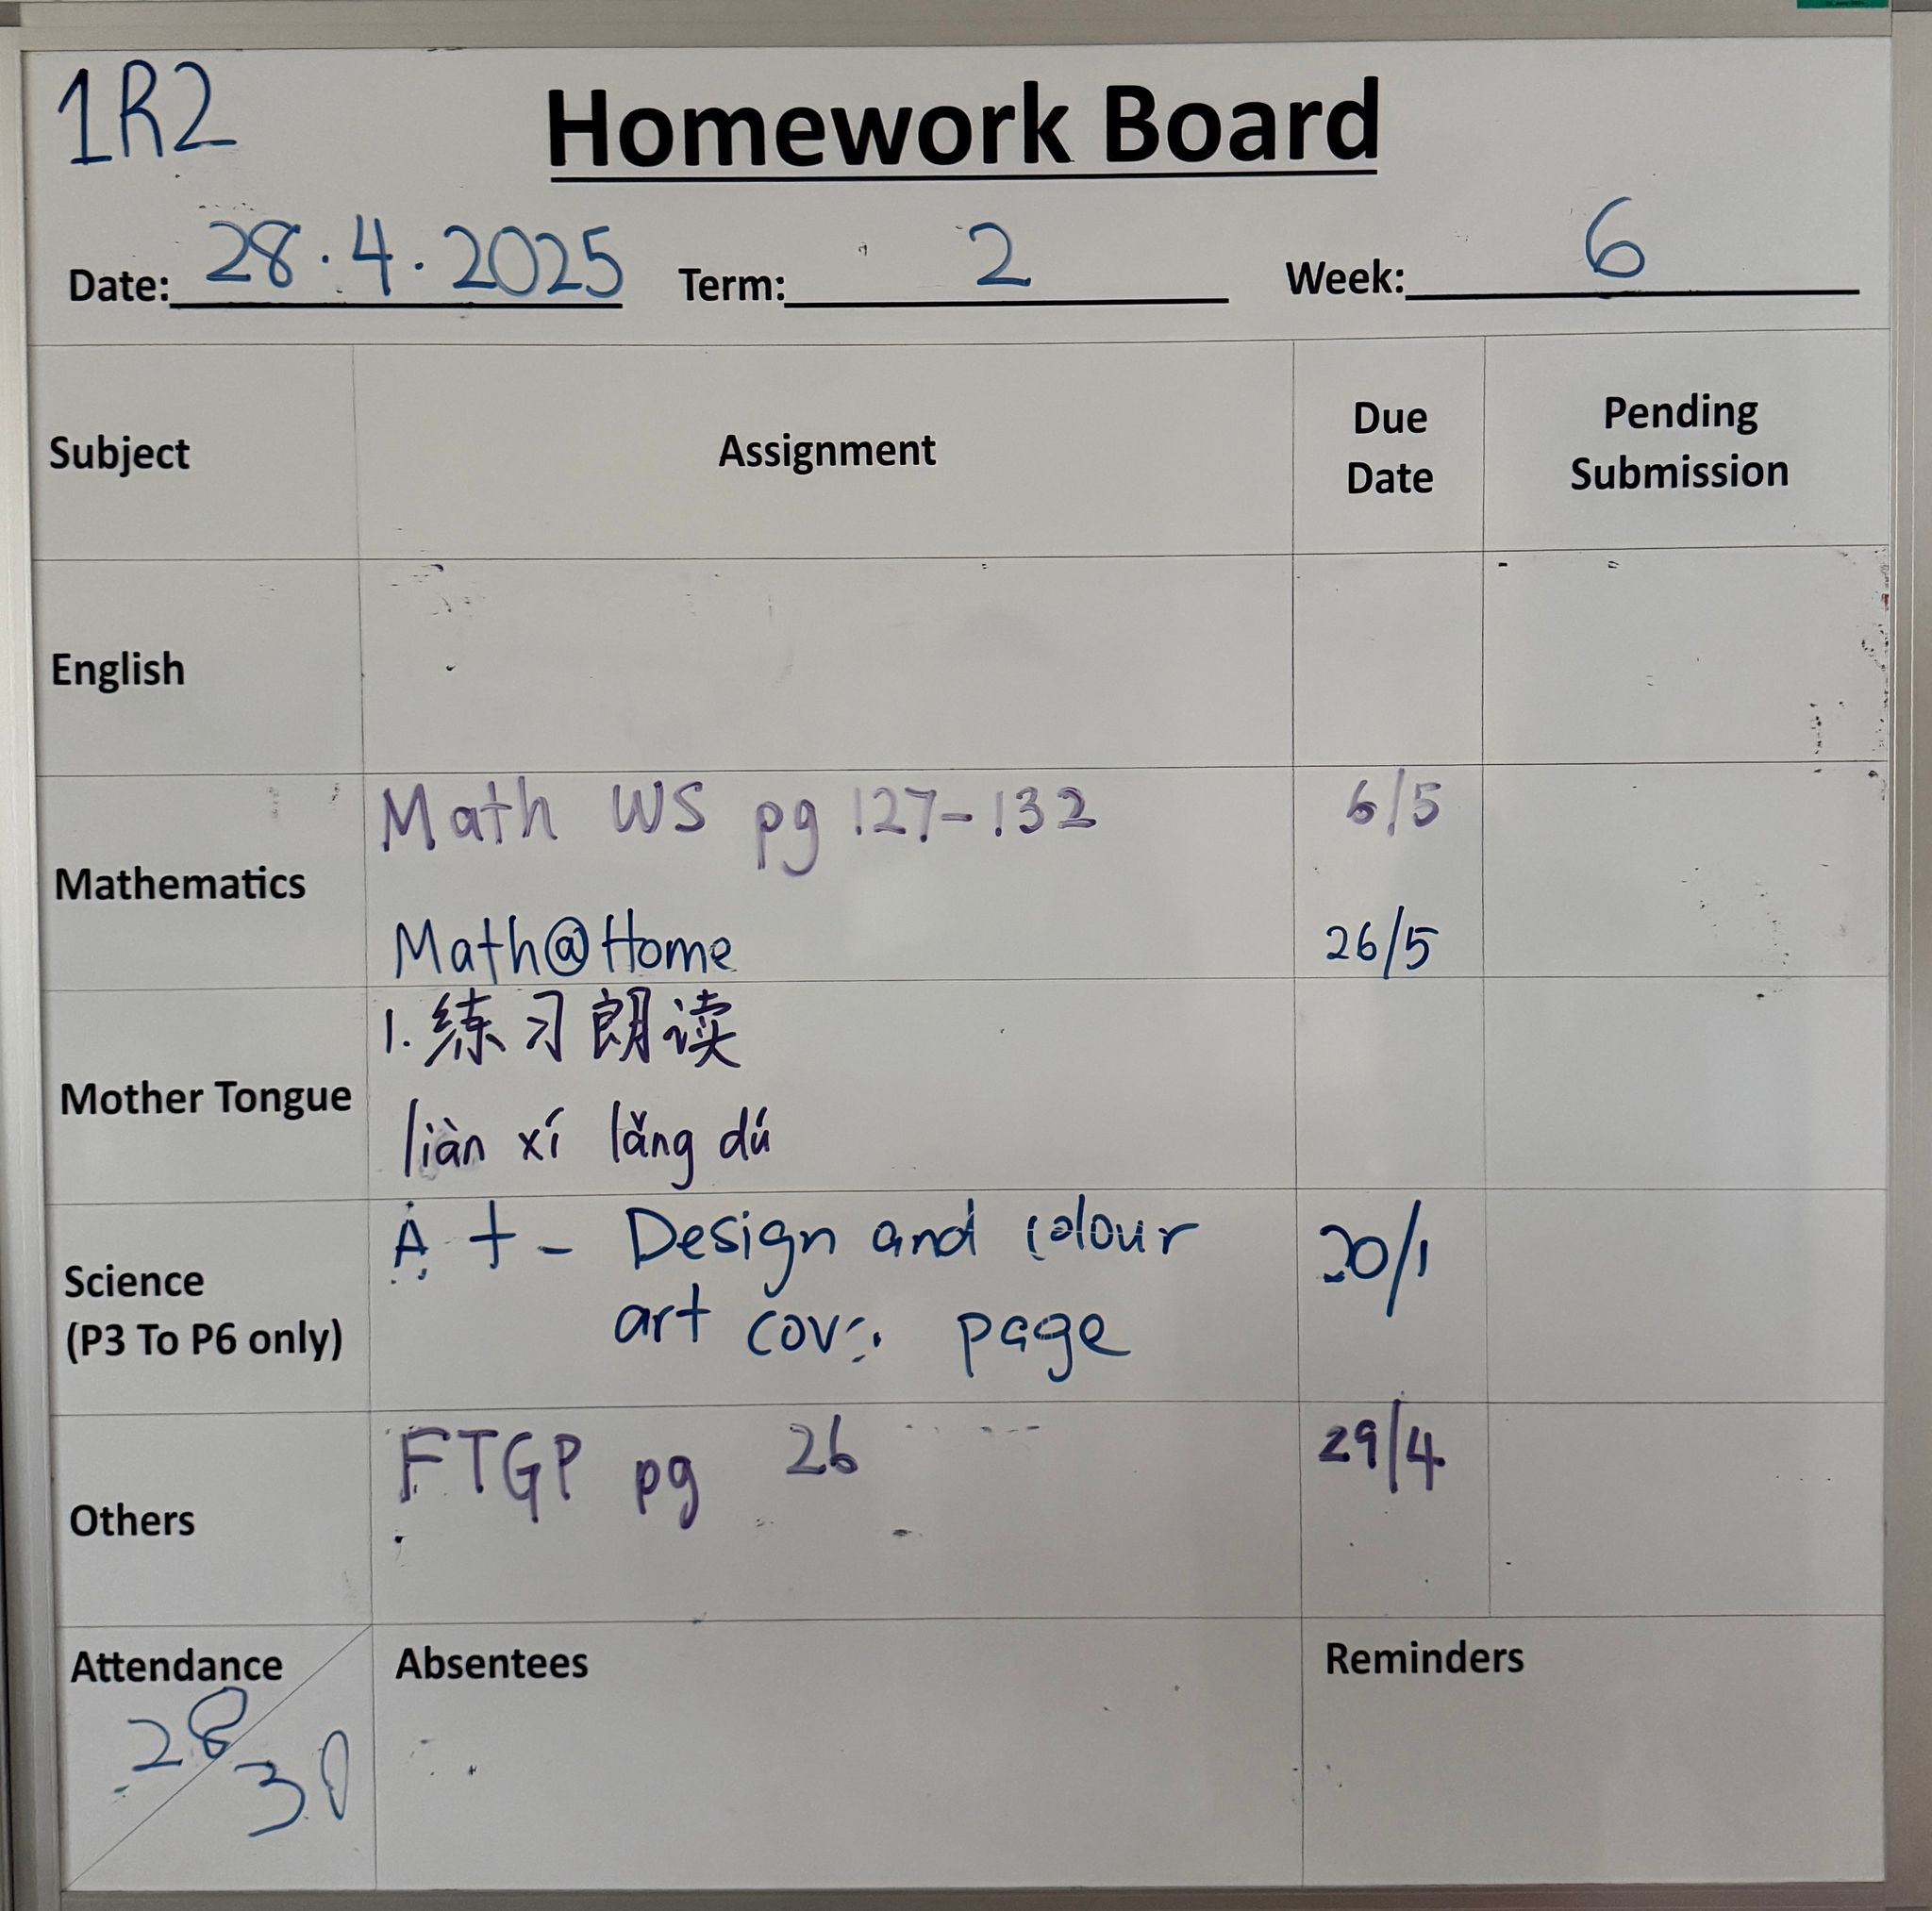 1R2
Homework Board
Date: 28.4.2025 Term: 2 Week: 6
Subject Assignment Due Date Pending Submission
English
Mathematics
Math WS pg 127-132 6/5
Math@Home 26/5
Mother Tongue
1. 练习朗读
liàn xí lǎng dú
Science
(P3 To P6 only)
Design and colour 20/1
art page
Others
FTGP pg 26 29/4
Attendance Absentees Reminders
28/30